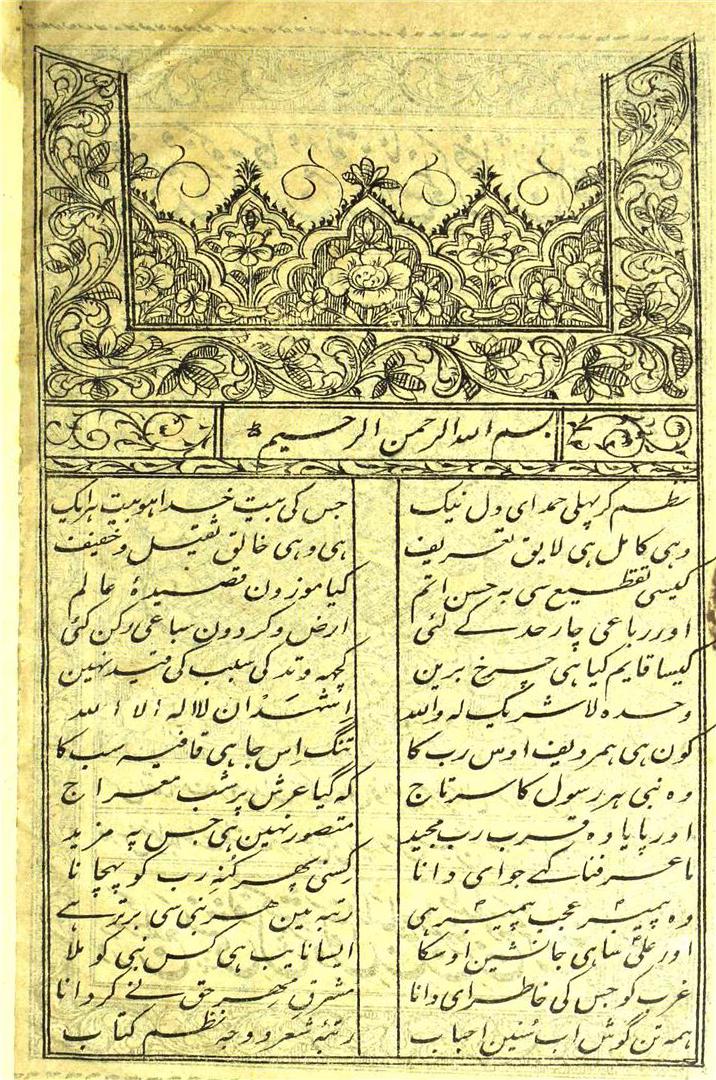 بسم الله الرحمن الرحیم
نظم کر پہلی حمد ای دل نیک جس کی بیت خدا ہو بیت ہر ایک
وہی کامل ہی لایق تعریف ہی وہی خالق ثقیل و خفیف
کیسی تقطیع سی بہ حسن اتم کیا موزون قصیدۂ عالم
اور رباعی چار حد کے لئی ارض و گردون سباعی رکن کئی
کیسا قایم کیا ہی چرخ برین کچھہ وتد کی سبب کی قید نہین
وحدہ لاشریک لہ واللہ اشہد ان لا الہ الا اللہ
کون ہی ہمردیف اوس رب کا تنگ اِس جا ہی قافیہ سب کا
وہ نبی ہر رسول کا سرتاج کہ گیا عرش پر شب معراج
اور پایا وہ قرب رب مجید متصور نہین ہی جس پہ مزید
ما عرفنا کہے جو ای دانا کِسنی پھر کُنہِ رب کو پہچانا
وہ پیمبر عجب پیمبر ہی رتبہ مین ہر نبی سی برتر ہے
اور علی سا ہی جانشین اوسکا ایسا نایب ہی کس نبی کو ملا
غرب کو جس کی خاطر ای دانا مشرقِ مِہر حق نے گردانا
ہمہ تن گوش اب سُنین احباب رتبۂ شعر و وجہ نظم کتاب